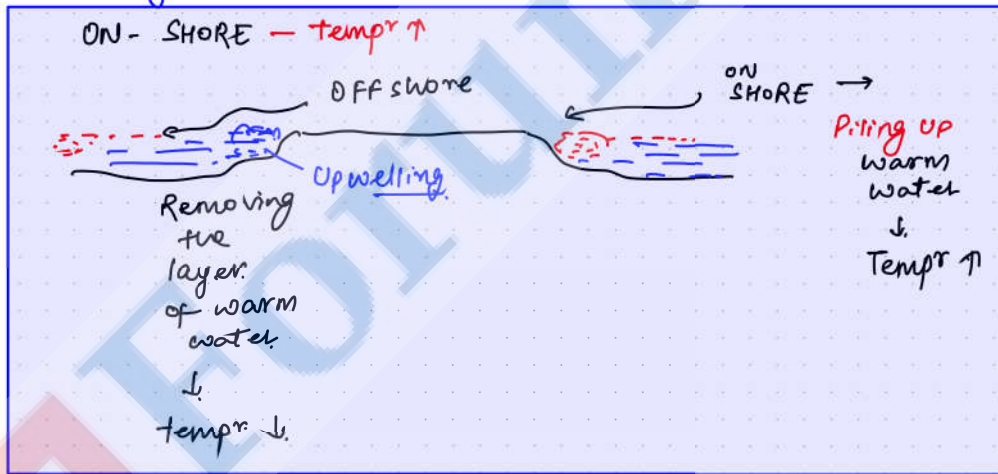 ON- SHORE — tempr ↑
OFFshore
ON
SHORE →
Upwelling
Removing
the
layer.
of warm
water
↓
tempr. ↓.
Piling UP
warm
water
↓.
Tempr ↑
Forum